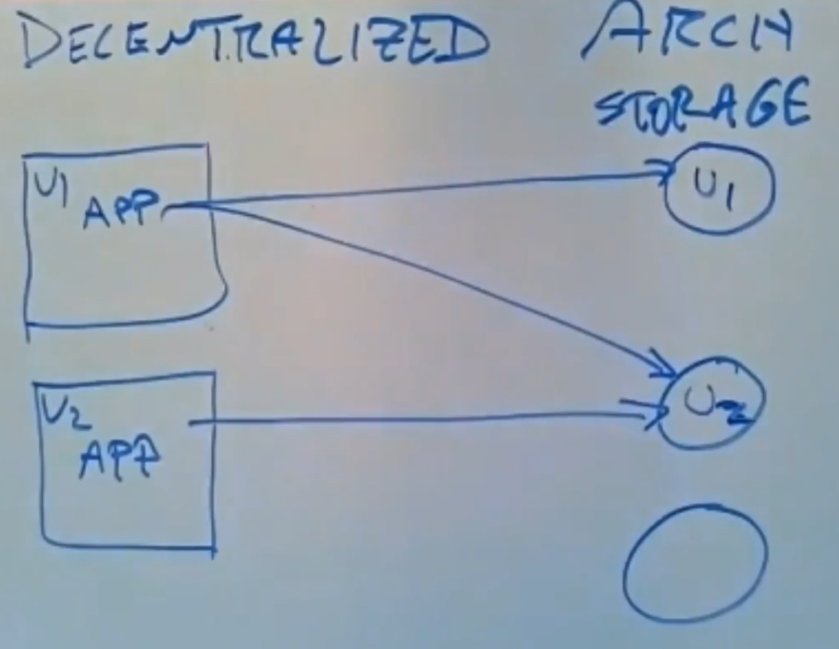 DECENTRALIZED ARCH
STORAGE
U1 APP
U1
U2
APP
U2